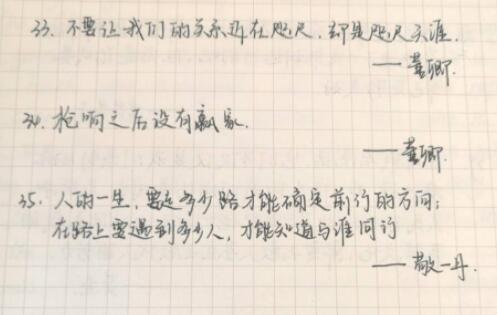 33. 不要让我们的关系近在咫尺，却是咫尺天涯.
——董卿.
34. 枪响之后没有赢家.
——董卿.
35. 人的一生，要走多少路才能确定前行的方向；
在路上要遇到多少人，才能知道与谁同行
——敬一丹.